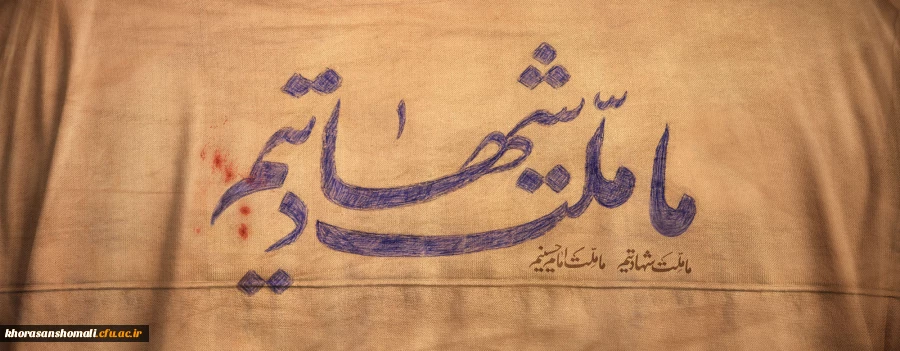 ما ملّت شهادتیم
ما ملّت شهادتیم ما ملّت امام حسینیم
khorasanshomali.cfu.ac.ir